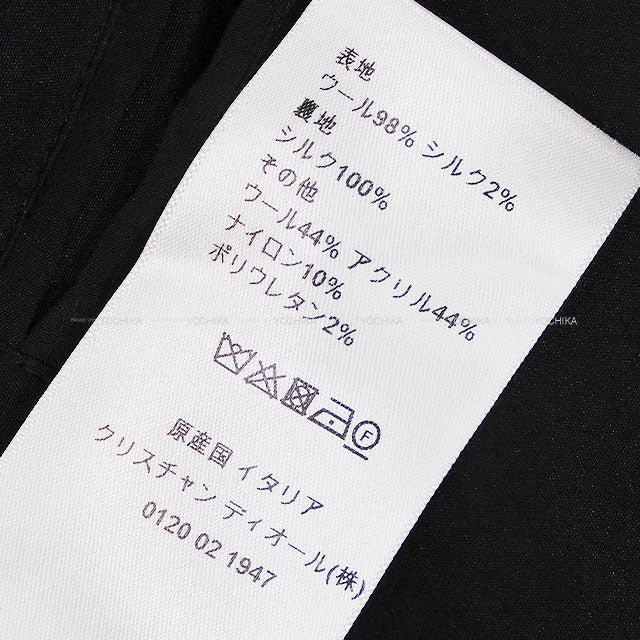 表地
ウール98% シルク2%
裏地
シルク100%
その他
ウール44% アクリル44%
ナイロン10%
ポリウレタン2%
F
原産国 イタリア
クリスチャン ディオール(株)
0120 02 1947
YOCHIKA YOCHIKA YOCHIKA YOCHIKA